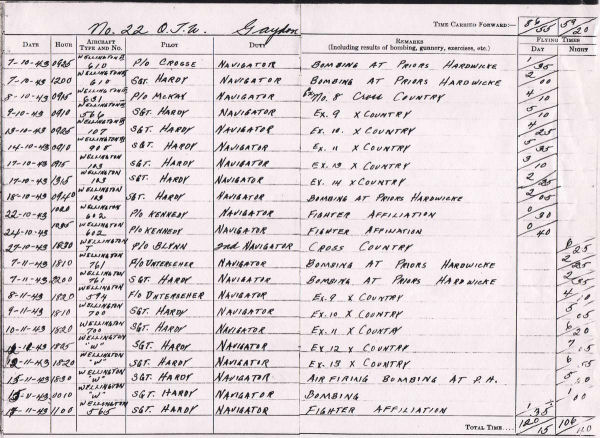 No. 22 O.T.U. Gaydon TIME CARRIED FORWARD:— 86/55 59/20
DATE HOUR AIRCRAFT TYPE AND No. PILOT DUTY REMARKS (Including results of bombing, gunnery, exercises, etc.) FLYING TIMES DAY NIGHT
7-10-43 0925 WELLINGTON 610 P/O CROSSE NAVIGATOR BOMBING AT PRIORS HARDWICKE 1/35
7-10-43 1200 WELLINGTON 617 SGT. HARDY NAVIGATOR BOMBING AT PRIORS HARDWICKE 2/00
8-10-43 0915 WELLINGTON 631 P/O McKAY NAVIGATOR Ex No. 8 CROSS COUNTRY 4/10
9-10-43 0910 WELLINGTON 566 SGT. HARDY NAVIGATOR EX. 9 X COUNTRY 5/10
13-10-43 0925 WELLINGTON 107 SGT. HARDY NAVIGATOR EX. 10. X COUNTRY 4/25
14-10-43 0910 WELLINGTON 905 SGT. HARDY NAVIGATOR EX. 11 X COUNTRY 5/35
17-10-43 0915 WELLINGTON 123 SGT. HARDY NAVIGATOR EX. 13 X COUNTRY 3/10
17-10-43 1315 WELLINGTON 123 SGT. HARDY NAVIGATOR EX. 14 X COUNTRY 2/35
18-10-43 0940 WELLINGTON 123 SGT. HARDY NAVIGATOR BOMBING AT PRIORS HARDWICKE 2/05
22-10-43 1020 WELLINGTON 602 P/O KENNEDY NAVIGATOR FIGHTER AFFILIATION 0/30
24-10-43 WELLINGTON 602 P/O KENNEDY NAVIGATOR FIGHTER AFFILIATION 0/40
27-10-43 1830 WELLINGTON T P/O BLYNN 2nd NAVIGATOR CROSS COUNTRY 6/25
7-11-43 1810 WELLINGTON 761 F/O UNTERSEHER NAVIGATOR BOMBING AT PRIORS HARDWICKE 2/25
7-11-43 2200 WELLINGTON 761 SGT. HARDY NAVIGATOR BOMBING AT PRIORS HARDWICKE 2/35
8-11-43 1820 WELLINGTON 594 F/O UNTERSEHER NAVIGATOR EX. 9 X COUNTRY 4/10
9-11-43 1810 WELLINGTON 700 SGT. HARDY NAVIGATOR EX. 10 X COUNTRY 5/05
10-11-43 1820 WELLINGTON 700 SGT. HARDY NAVIGATOR EX. 11 X COUNTRY 6/20
-11-43 1825 WELLINGTON "W" SGT. HARDY NAVIGATOR EX 12 X COUNTRY 7/15
-11-43 1820 WELLINGTON "W" SGT. HARDY NAVIGATOR EX. 13 X COUNTRY 6
15-11-43 1830 WELLINGTON "W" SGT. HARDY NAVIGATOR AIR FIRING BOMBING AT P.H. 5
-11-43 0010 WELLINGTON "W" SGT. HARDY NAVIGATOR BOMBING 1/00
-11-43 1100 WELLINGTON 565 SGT. HARDY NAVIGATOR FIGHTER AFFILIATION 1/35
TOTAL TIME.... 120/15 106/10